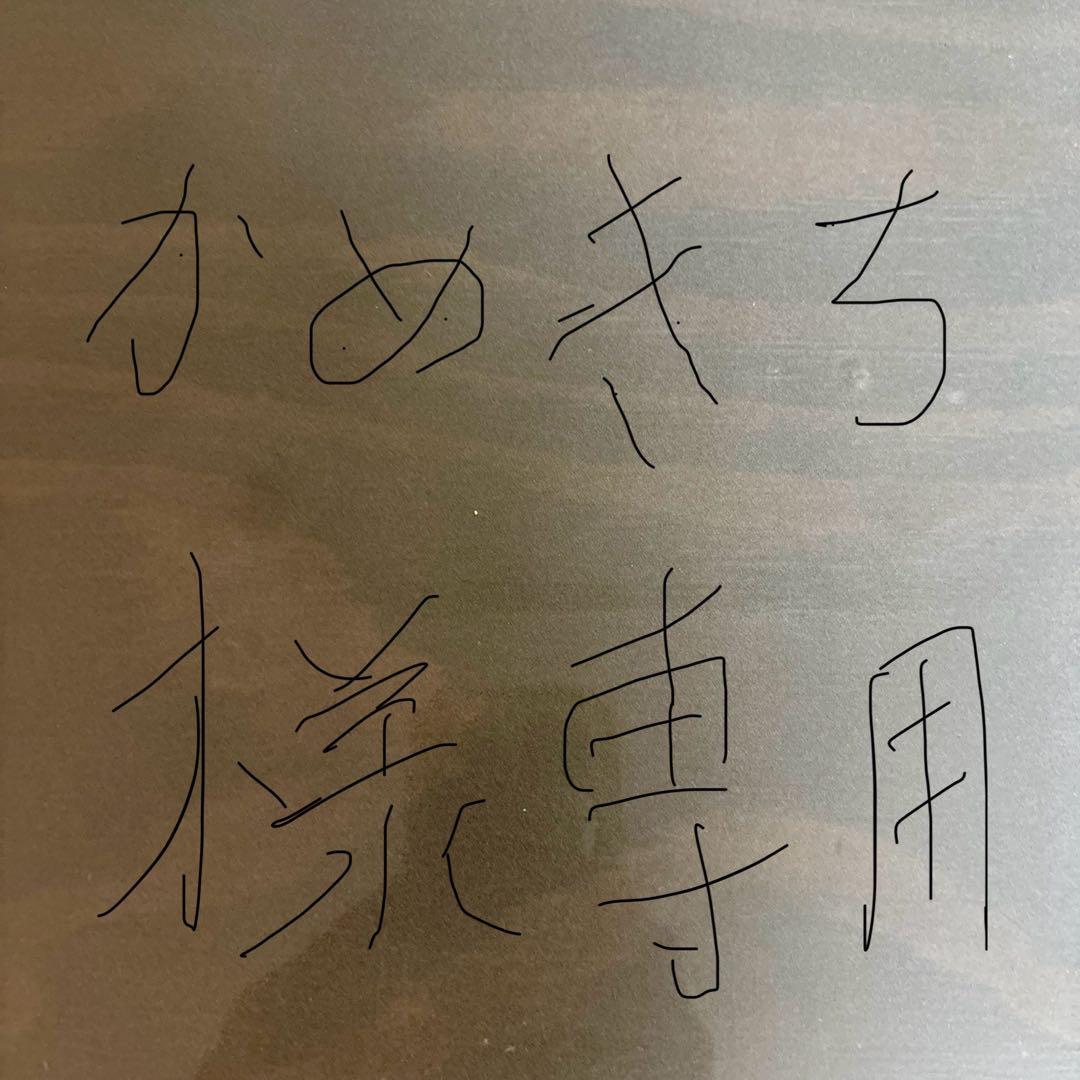 かめきち
様専用